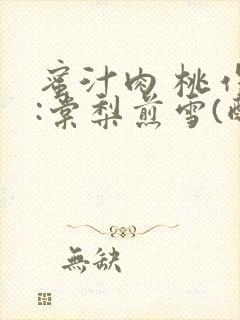 蜜汁肉桃作
:棠梨煎雪(
無缺